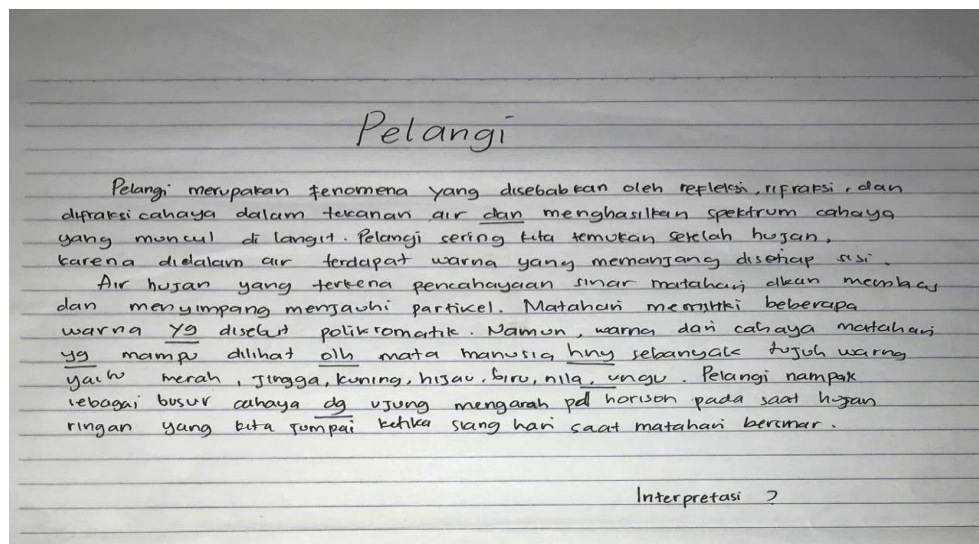 Pelangi
Pelangi merupakan fenomena yang disebabkan oleh refleksi, rifraksi, dan
difraksi cahaya dalam tekanan air dan menghasilkan spektrum cahaya
yang muncul di langit. Pelangi sering kita temukan setelah hujan,
karena didalam air terdapat warna yang memanjang disetiap sisi.
Air hujan yang terkena pencahayaan sinar matahari akan membias
dan menyimpang menjauhi partikel. Matahari memiliki beberapa
warna yg disebut polikromatik. Namun, warna dari cahaya matahari
yg mampu dilihat olh mata manusia hny sebanyak tujuh warna
yaitu merah, Jingga, kuning, hijau, biru, nila, ungu. Pelangi nampak
sebagai busur cahaya dg ujung mengarah pd horison pada saat hujan
ringan yang kita jumpai ketika siang hari saat matahari bersinar.
Interpretasi ?